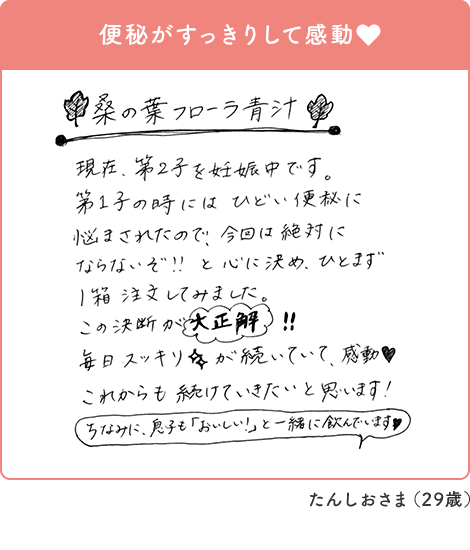 便秘がすっきりして感動♥
桑の葉フローラ青汁
現在、第2子を妊娠中です。
第1子の時には ひどい便秘に
悩まされたので、今回は絶対に
ならないぞ!! と心に決め、ひとまず
1箱 注文してみました。
この決断が大正解!!
毎日スッキリ✨が続いていて、感動♥
これからも続けていきたいと思います!
ちなみに、息子も「おいしい!」と一緒に飲んでいます♥
たんしおさま（29歳）